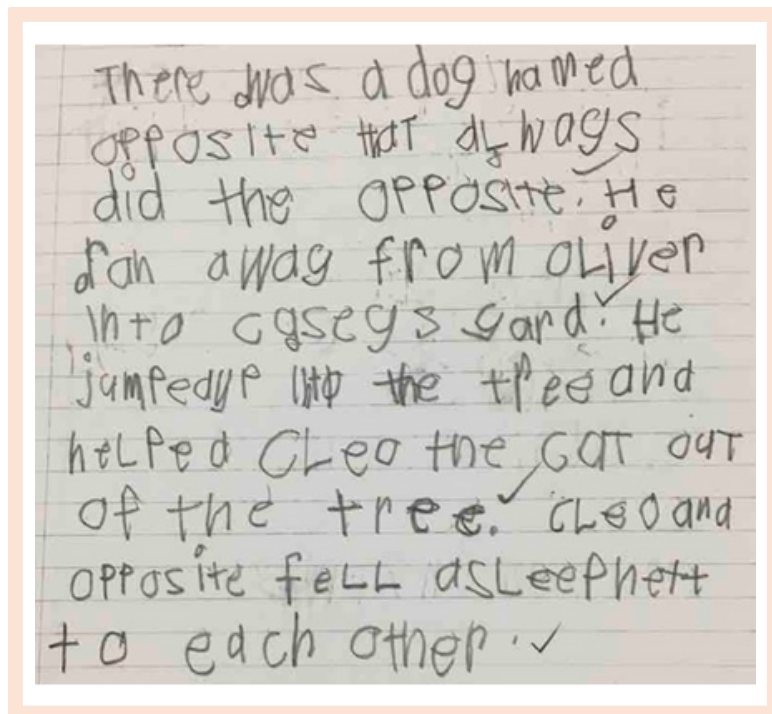 There was a dog named
opposite that always
did the opposite. He
ran away from oliver
into caseys yard. He
jumped up into the tree and
helped cleo the cat out
of the tree. cleo and
opposite fell asleep next
to each other.